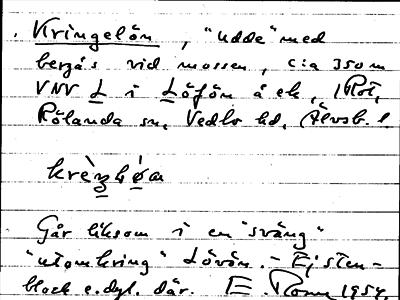 Kringelön, "udde" med
bergås vid mossen, c:a 350 m
VNV L i Löfön å ek,
Rölanda sn, Vedbo hd, Älvsb. l.
Går liksom i en "sväng"
"utomkring" Lövön. - Ej sten-
block e.dyl. där. E 1954.